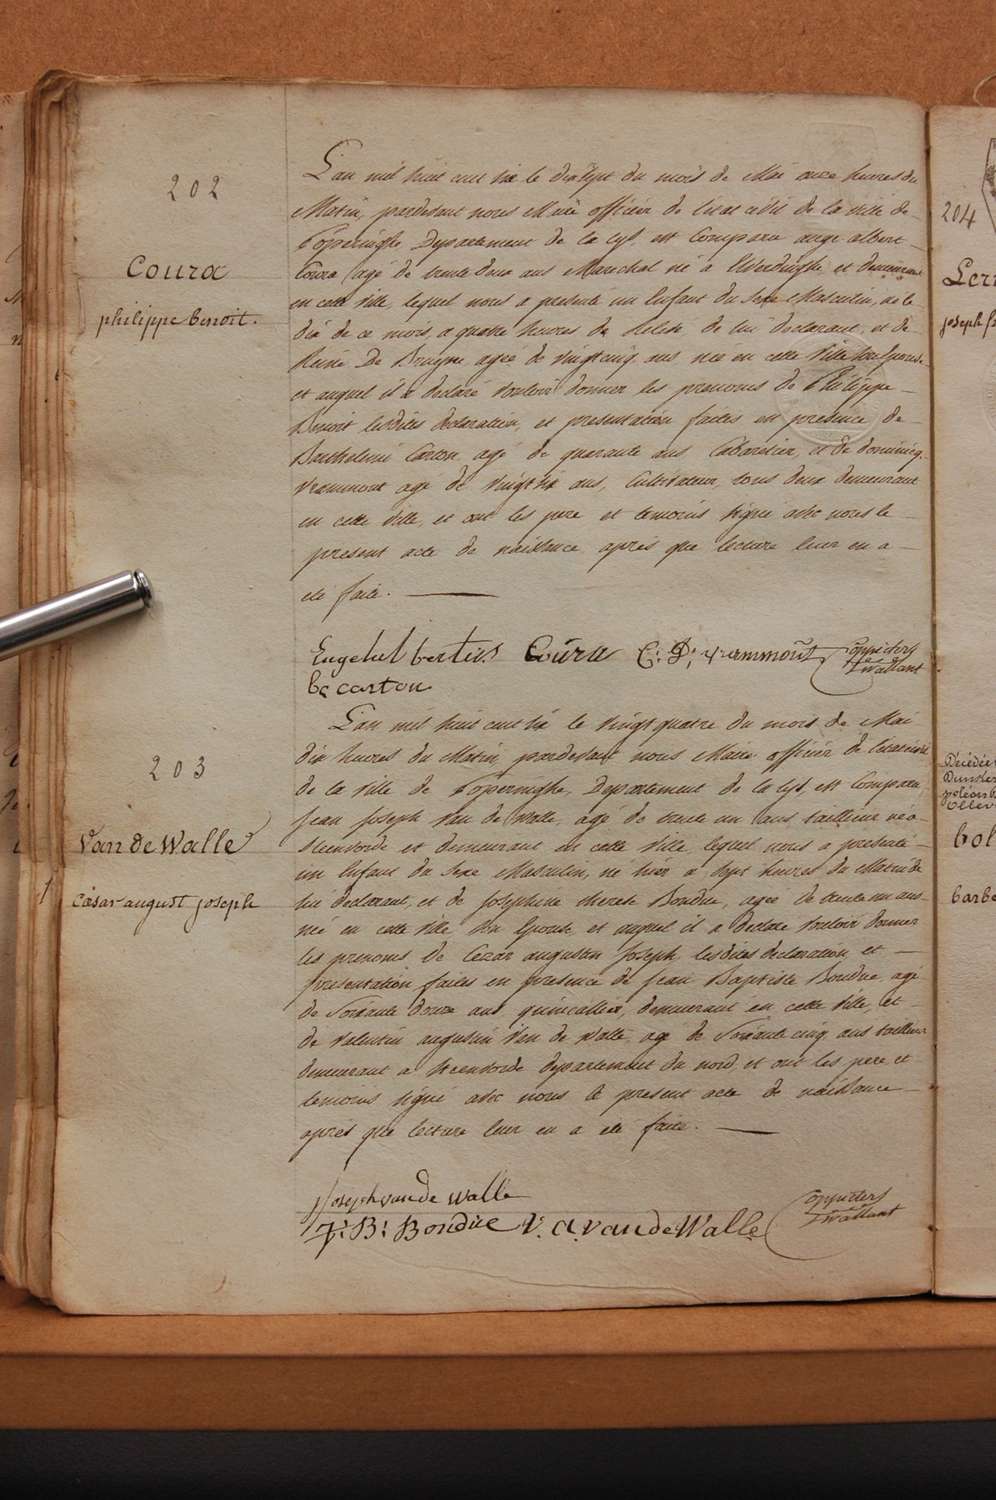 202
Coura
philippe benoit.
L'an mil huit cent six le dix sept du mois de Mai onze heures du
Matin, pardevant nous Maire officier de l'etat civil de la ville de
Poperinghe, Departement de la Lys, est Comparu ange albert
Coura agé de trente deux ans Marechal né a et demeurant
en cette ville, lequel nous a presenté un Enfant du Sexe Masculin, né le
dix de ce mois, a quatre heures de de lui declarant, et de
De Bruyne agée de vingt cinq ans née en cette ville son epouse
et auquel il a declaré vouloir donner les prenoms de Philippe
Benoit lesdites declaration, et presentation faites en presence de
Barthelemi Carton agé de quarante ans Cabaretier, et de dominiq.
vrammout agé de vingt six ans, Cultivateur, tous deux demeurant
en cette ville, et ont les pere et temoins signé avec nous le
present acte de naissance apres que lecture leur en a
eté faite.
Engelul bertus Coura C: D: vrammout
be carton
203
Van de Walle
Cæsar august joseph
L'an mil huit cent six le vingt quatre du mois de Mai
dix heures du Matin, pardevant nous Maire officier de l'etat civil
de la ville de Poperinghe, Departement de la Lys, est Comparu
Jean Joseph Van de Walle, agé de trente un ans tailleur né a
Steenvorde et demeurant en cette ville, lequel nous a presenté
un Enfant du Sexe Masculin, né hier a sept heures du Matin de
lui declarant, et de Josephine therese Bondue, agée de trente un ans
née en cette ville Son Epouse, et auquel il a declaré vouloir donner
les prenoms de Cezar augustin Joseph lesdites declaration et
presentation faites en presence de Jean Baptiste Bondue agé
de Soixante douze ans, quincallier, demeurant en cette ville, et
de Valentin augustin Van de Walle, agé de Soixante cinq ans tailleur
demeurant a Steenvorde departement du nord, et ont les pere et
temoins signé avec nous le present acte de naissance
apres que lecture leur en a eté faite.
J Joseph van de walle
J: B: Bondue V: A. van de Walle
204
joseph